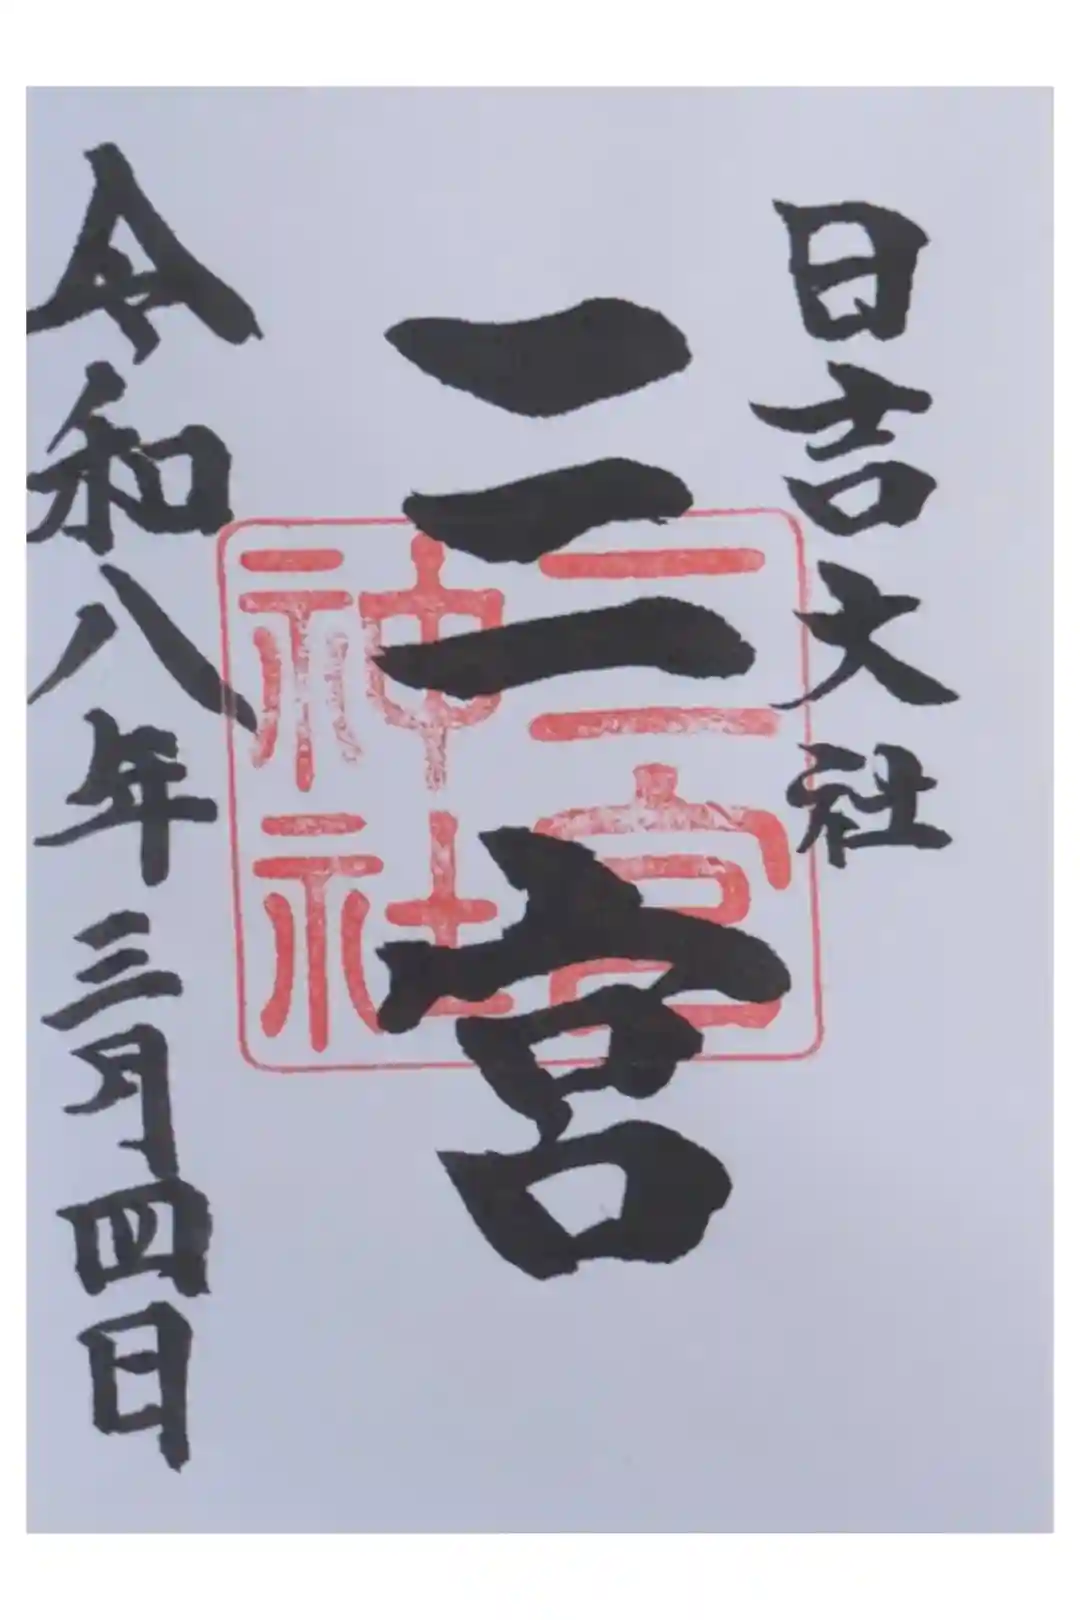 日吉大社
三宮
令和八年三月四日
三宮
神社